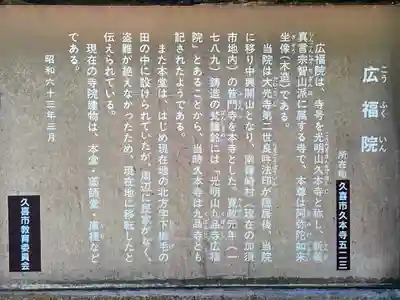 こうふくいん
広福院
所在地 久喜市久本寺五二三
広福院は、寺号を光明山久本寺と称し、新義
真言宗智山派に属する寺で、本尊は阿弥陀如来
坐像(木造)である。
当院は大光寺第二世良呼法印が隠居後、当院
に移り中興開山となり、南篠崎村(現在の加須
市地内)の普門寺を本寺とした。寛政元年(一
七八九)鋳造の
「光明山九品寺広福
院」とあることから、当時久本寺は九品寺とも
記されたようである。
また本堂は、はじめ現在地の北方字下
の
田の中に設けられていたが、周辺に民家がなく、
盗難が絶えなかったため、現在地に移転したと
伝えられている。
現在の寺院建物は、本堂・薬師堂・庫裡など
である。
昭和六十三年三月
久喜市教育委員会